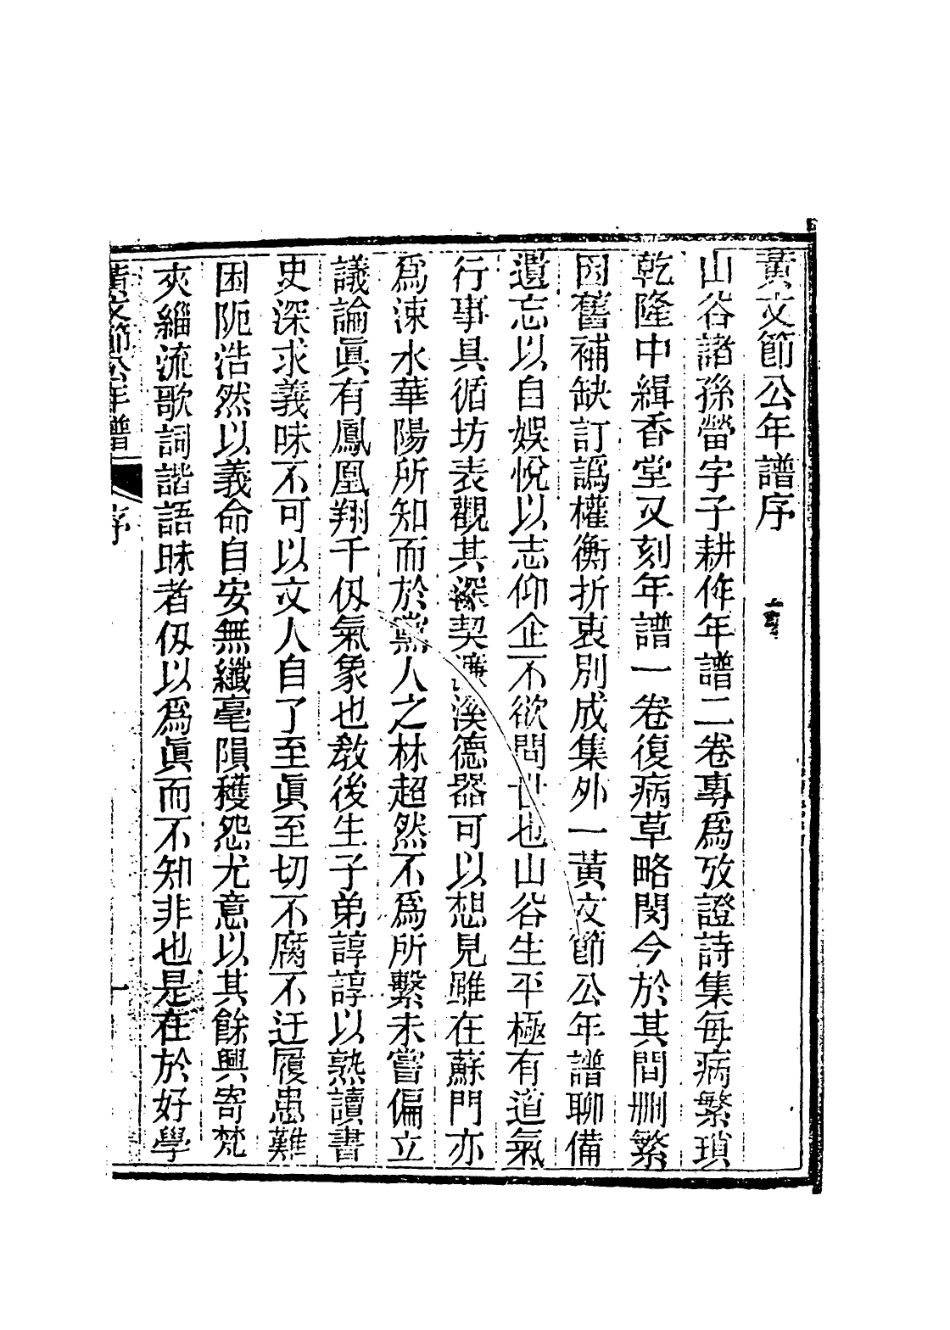 黃文節公年譜序
山谷諸孫㽦字子耕作年譜二卷專爲攷證詩集每病繁瑣
乾隆中緝香堂又刻年譜一卷復病草略閔今於其間刪繁
因舊補缺訂譌權衡折衷別成集外一黃文節公年譜聊備
遺忘以自娛悅以志仰企不欲問世也山谷生平極有道氣
行事具循坊表觀其深契濂溪德器可以想見雖在蘇門亦
爲涑水華陽所知而於黨人之林超然不爲所繫未嘗偏立
議論眞有鳳凰翔千仭氣象也敎後生子弟諄諄以熟讀書
史深求義味不可以文人自了至眞至切不腐不迂履患難
困阨浩然以義命自安無纖毫隕穫怨尤意以其餘興寄梵
夾緇流歌詞諧語昧者仭以爲眞而不知非也是在於好學
黃文節公年譜 序 一